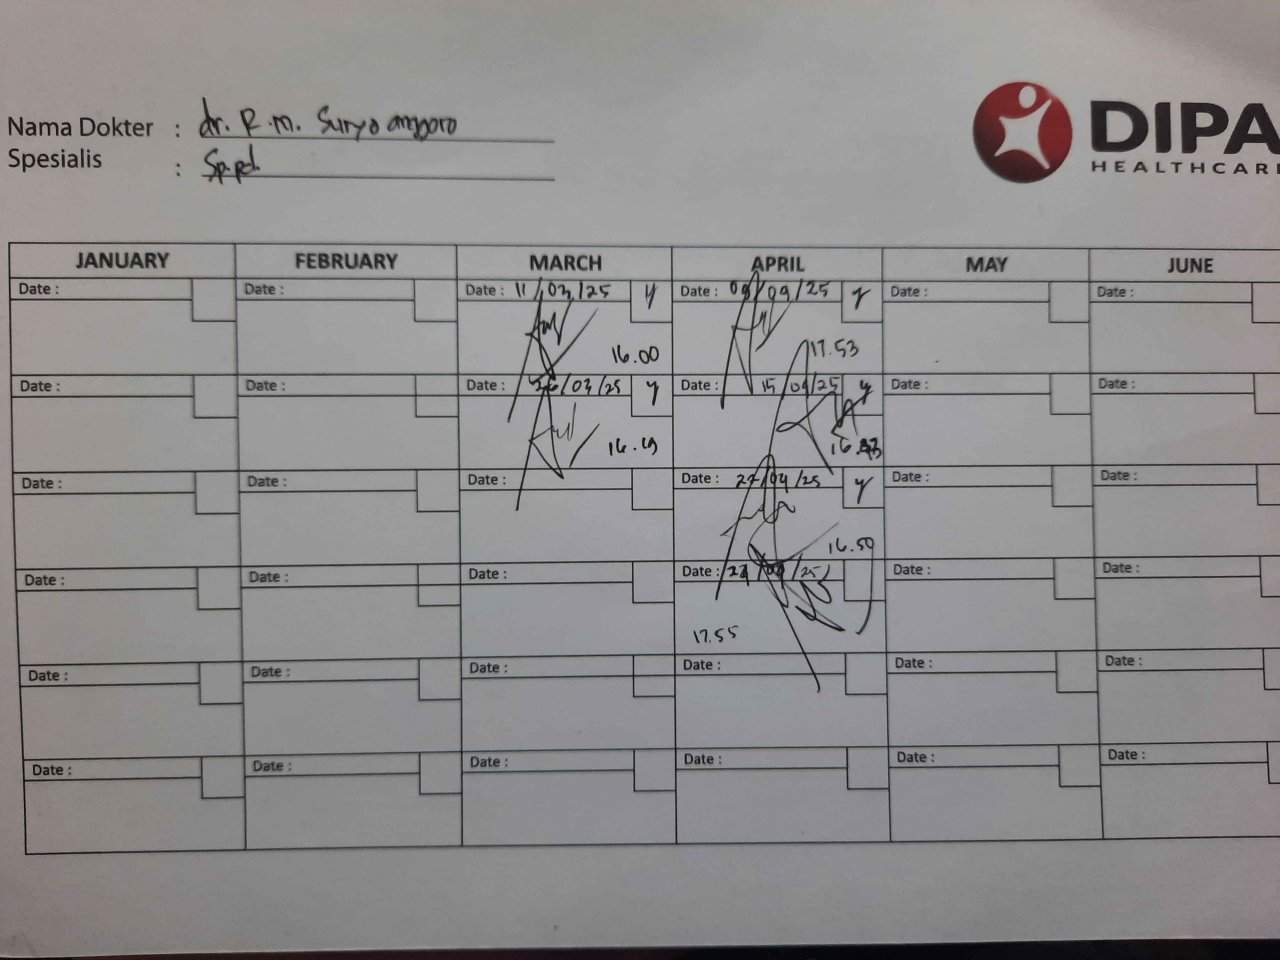 Nama Dokter : dr. R.M. Suryo anggoro
Spesialis : Sp.pd.
DIPA
HEALTHCARE
JANUARY FEBRUARY MARCH APRIL MAY JUNE
Date : Date : Date : 11/03/25 y Date : 09/09/25 y Date : Date :
16.00 17.53
Date : Date : Date : 26/03/25 y Date : 15/04/25 y Date : Date :
16.19
Date : Date : Date : Date : 22/04/25 y Date : Date :
16.50
Date : Date : Date : Date : /25 Date : Date :
17.55
Date : Date : Date : Date : Date : Date :
Date : Date : Date : Date : Date : Date :